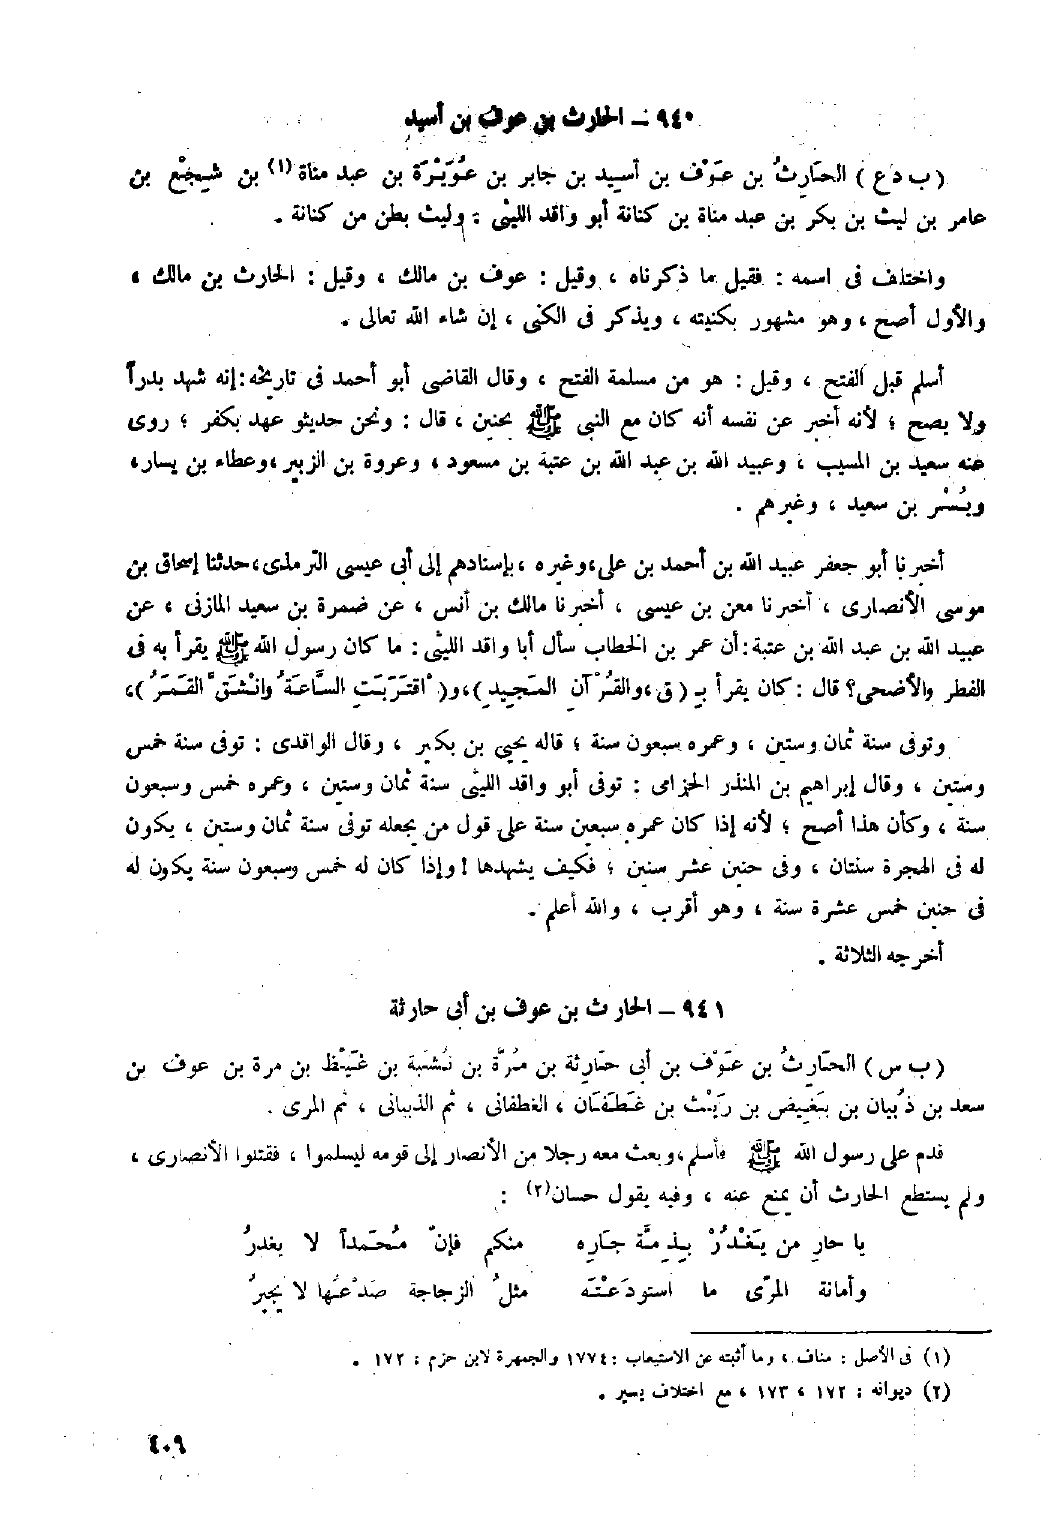 ٩٤٠ ـ الحارث بن عوف بن أسيد
( ب د ع ) الحَارِثُ بن عَوْف بن أسِيد بن جابر بن عُوَيْرَة بن عبد مناة (١) بن شِيجْع بن
عامر بن ليث بن بكر بن عبد مناة بن كنانة أبو واقد الليثى ؛ وليث بطن من كنانة .
واختلف فى اسمه : فقيل ما ذكرناه ، وقيل : عوف بن مالك ، وقيل : الحارث بن مالك ،
والأول أصح ، وهو مشهور بكنيته ، ويذكر فى الكنى ، إن شاء الله تعالى .
أسلم قبل الفتح ، وقيل : هو من مسلمة الفتح ، وقال القاضى أبو أحمد فى تاريخه : إنه شهد بدراً
ولا يصح ؛ لأنه أخبر عن نفسه أنه كان مع النبى ﷺ بحنين ، قال : ونحن حديثو عهد بكفر ؛ روى
عنه سعيد بن المسيب ، وعبيد الله بن عبد الله بن عتبة بن مسعود ، وعروة بن الزبير ، وعطاء بن يسار ،
وبُسْر بن سعيد ، وغيرهم .
أخبرنا أبو جعفر عبيد الله بن أحمد بن على ، وغيره ، بإسنادهم إلى أبى عيسى الترمذى ، حدثنا إسحاق بن
موسى الأنصارى ، أخبرنا معن بن عيسى ، أخبرنا مالك بن أنس ، عن ضمرة بن سعيد المازنى ، عن
عبيد الله بن عبد الله بن عتبة : أن عمر بن الخطاب سأل أبا واقد الليثى : ما كان رسول الله ﷺ يقرأ به فى
الفطر والأضحى؟ قال : كان يقرأ بـ ( ق ، والقُرْآنِ المَجِيدِ ) ، و( اقْتَرَبَتِ السَّاعَةُ وانْشَقَّ القَمَرُ ) ،
وتوفى سنة ثمان وستين ، وعمره سبعون سنة ؛ قاله يحيى بن بكير ، وقال الواقدى : توفى سنة خمس
وستين ، وقال إبراهيم بن المنذر الحزامى : توفى أبو واقد الليثى سنة ثمان وستين ، وعمره خمس وسبعون
سنة ، وكأن هذا أصح ؛ لأنه إذا كان عمره سبعين سنة على قول من يجعله توفى سنة ثمان وستين ، يكون
له فى الهجرة سنتان ، وفى حنين عشر سنين ؛ فكيف يشهدها ! وإذا كان له خمس وسبعون سنة يكون له
فى حنين خمس عشرة سنة ، وهو أقرب ، والله أعلم .
أخرجه الثلاثة .
٩٤١ ـ الحارث بن عوف بن أبى حارثة
( ب س ) الحَارِثُ بن عَوْف بن أبى حَارِثة بن مُرَّة بن نُشْبَة بن غَيْظ بن مرة بن عوف بن
سعد بن ذُبيان بن بَغِيض بن رَيْث بن غَطَفَان ، الغطفانى ، ثم الذبيانى ، ثم المرى .
قدم على رسول الله ﷺ فأسلم ، وبعث معه رجلا من الأنصار إلى قومه ليسلموا ، فقتلوا الأنصارى ،
ولم يستطع الحارث أن يمنع عنه ، وفيه يقول حسان (٢) :
يا حارِ من يَغْدُرْ بِذِمَّة جَارِه منكم فإنّ مُحَمداً لا يغدرُ
وأمانة المرّى ما استودَعْتَه مثلُ الزجاجة صَدْعُها لا يجبرُ
(١) فى الأصل : مناف ، وما أثبته عن الاستيعاب : ١٧٧٤ والجمهرة لابن حزم : ١٧٢ .
(٢) ديوانه : ١٧٢ ، ١٧٣ ، مع اختلاف يسير .
٤٠٩